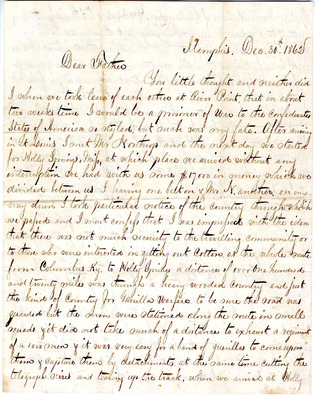 Memphis. Dec. 30th 1862
Dear Father
You little thought and neither did
I when we took leave of each other at River Point, that in about
two weeks time I would be a prisoner of War to the confederate
States of America so styled, but such was my fate. After arriving
in St Louis I met Mr and the next day we started
for Holly Springs, at which place we arived without any
interruption we had with us some $17,000 in money which we
divided between us I having one belt on & Mr N. another, on my
way down I took perticular notice of the country through which
we passed and I must confess that I was impressed with the idea
that there was not much security to the travelling community or
to those who were interested in getting out Cotton as the whole route
from Columbus Ky. to Holly Springs a distance of over one hundred
and twenty miles was through a heavy wooded country and just
the kind of Country for Guerilla Warfare. to be sure the road was
guarded but the men were stationed along the route in small
squads & it did not take much of a distance to expend a regiment
of a 1000 men & it was very easy for a band of guerillas to come upon
them & capture them by detachments, at the same time cutting the
telegraph wires and tearing up the track, when we arrived at Holly